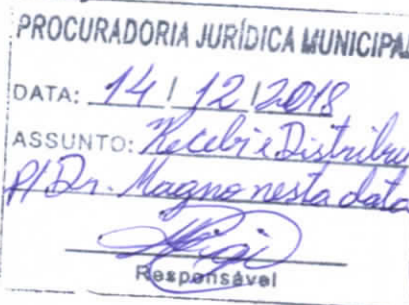 PROCURADORIA JURÍDICA MUNICIPAL
DATA: 14 / 12 / 2018
ASSUNTO: Recebi e Distribuí
p/ Dr. Magno nesta data
Responsável